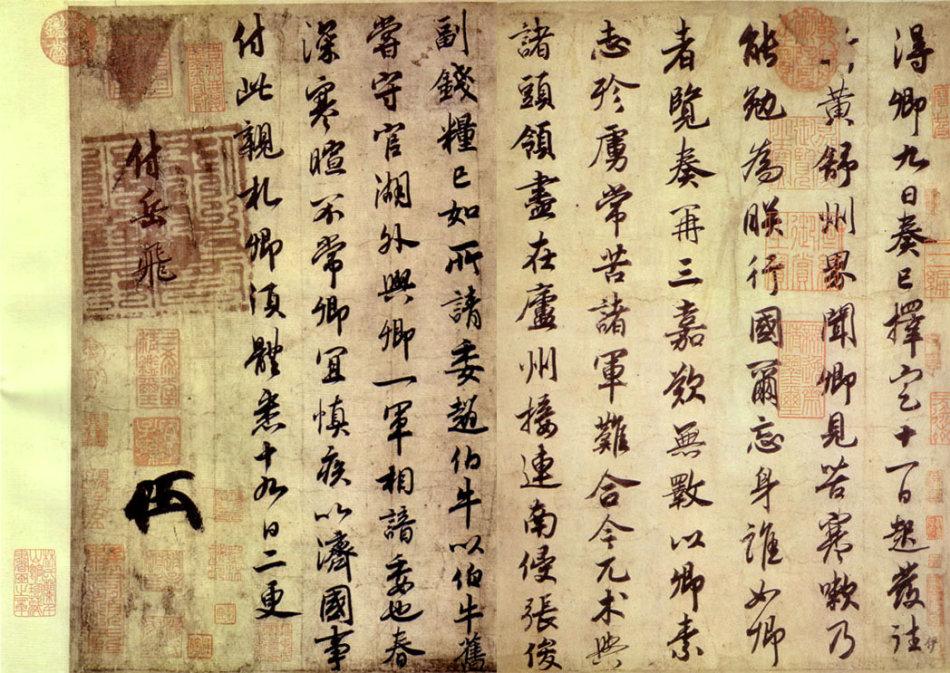 得卿九日奏已擇定十一日起發往
黄舒州界聞卿見苦寒嗽乃
能勉為朕行國爾忘身誰如卿
者覽奏再三嘉歎無斁以卿素
志殄虜常苦諸軍難合今兀术與
諸頭領盡在廬州接連南侵張俊
副錢糧已如所請委趙伯牛以伯牛舊
嘗守官湖外與卿一軍相諳委也春
深寒暄不常卿宜慎疾以濟國事
付此親札卿須體悉十九日二更
付岳飛